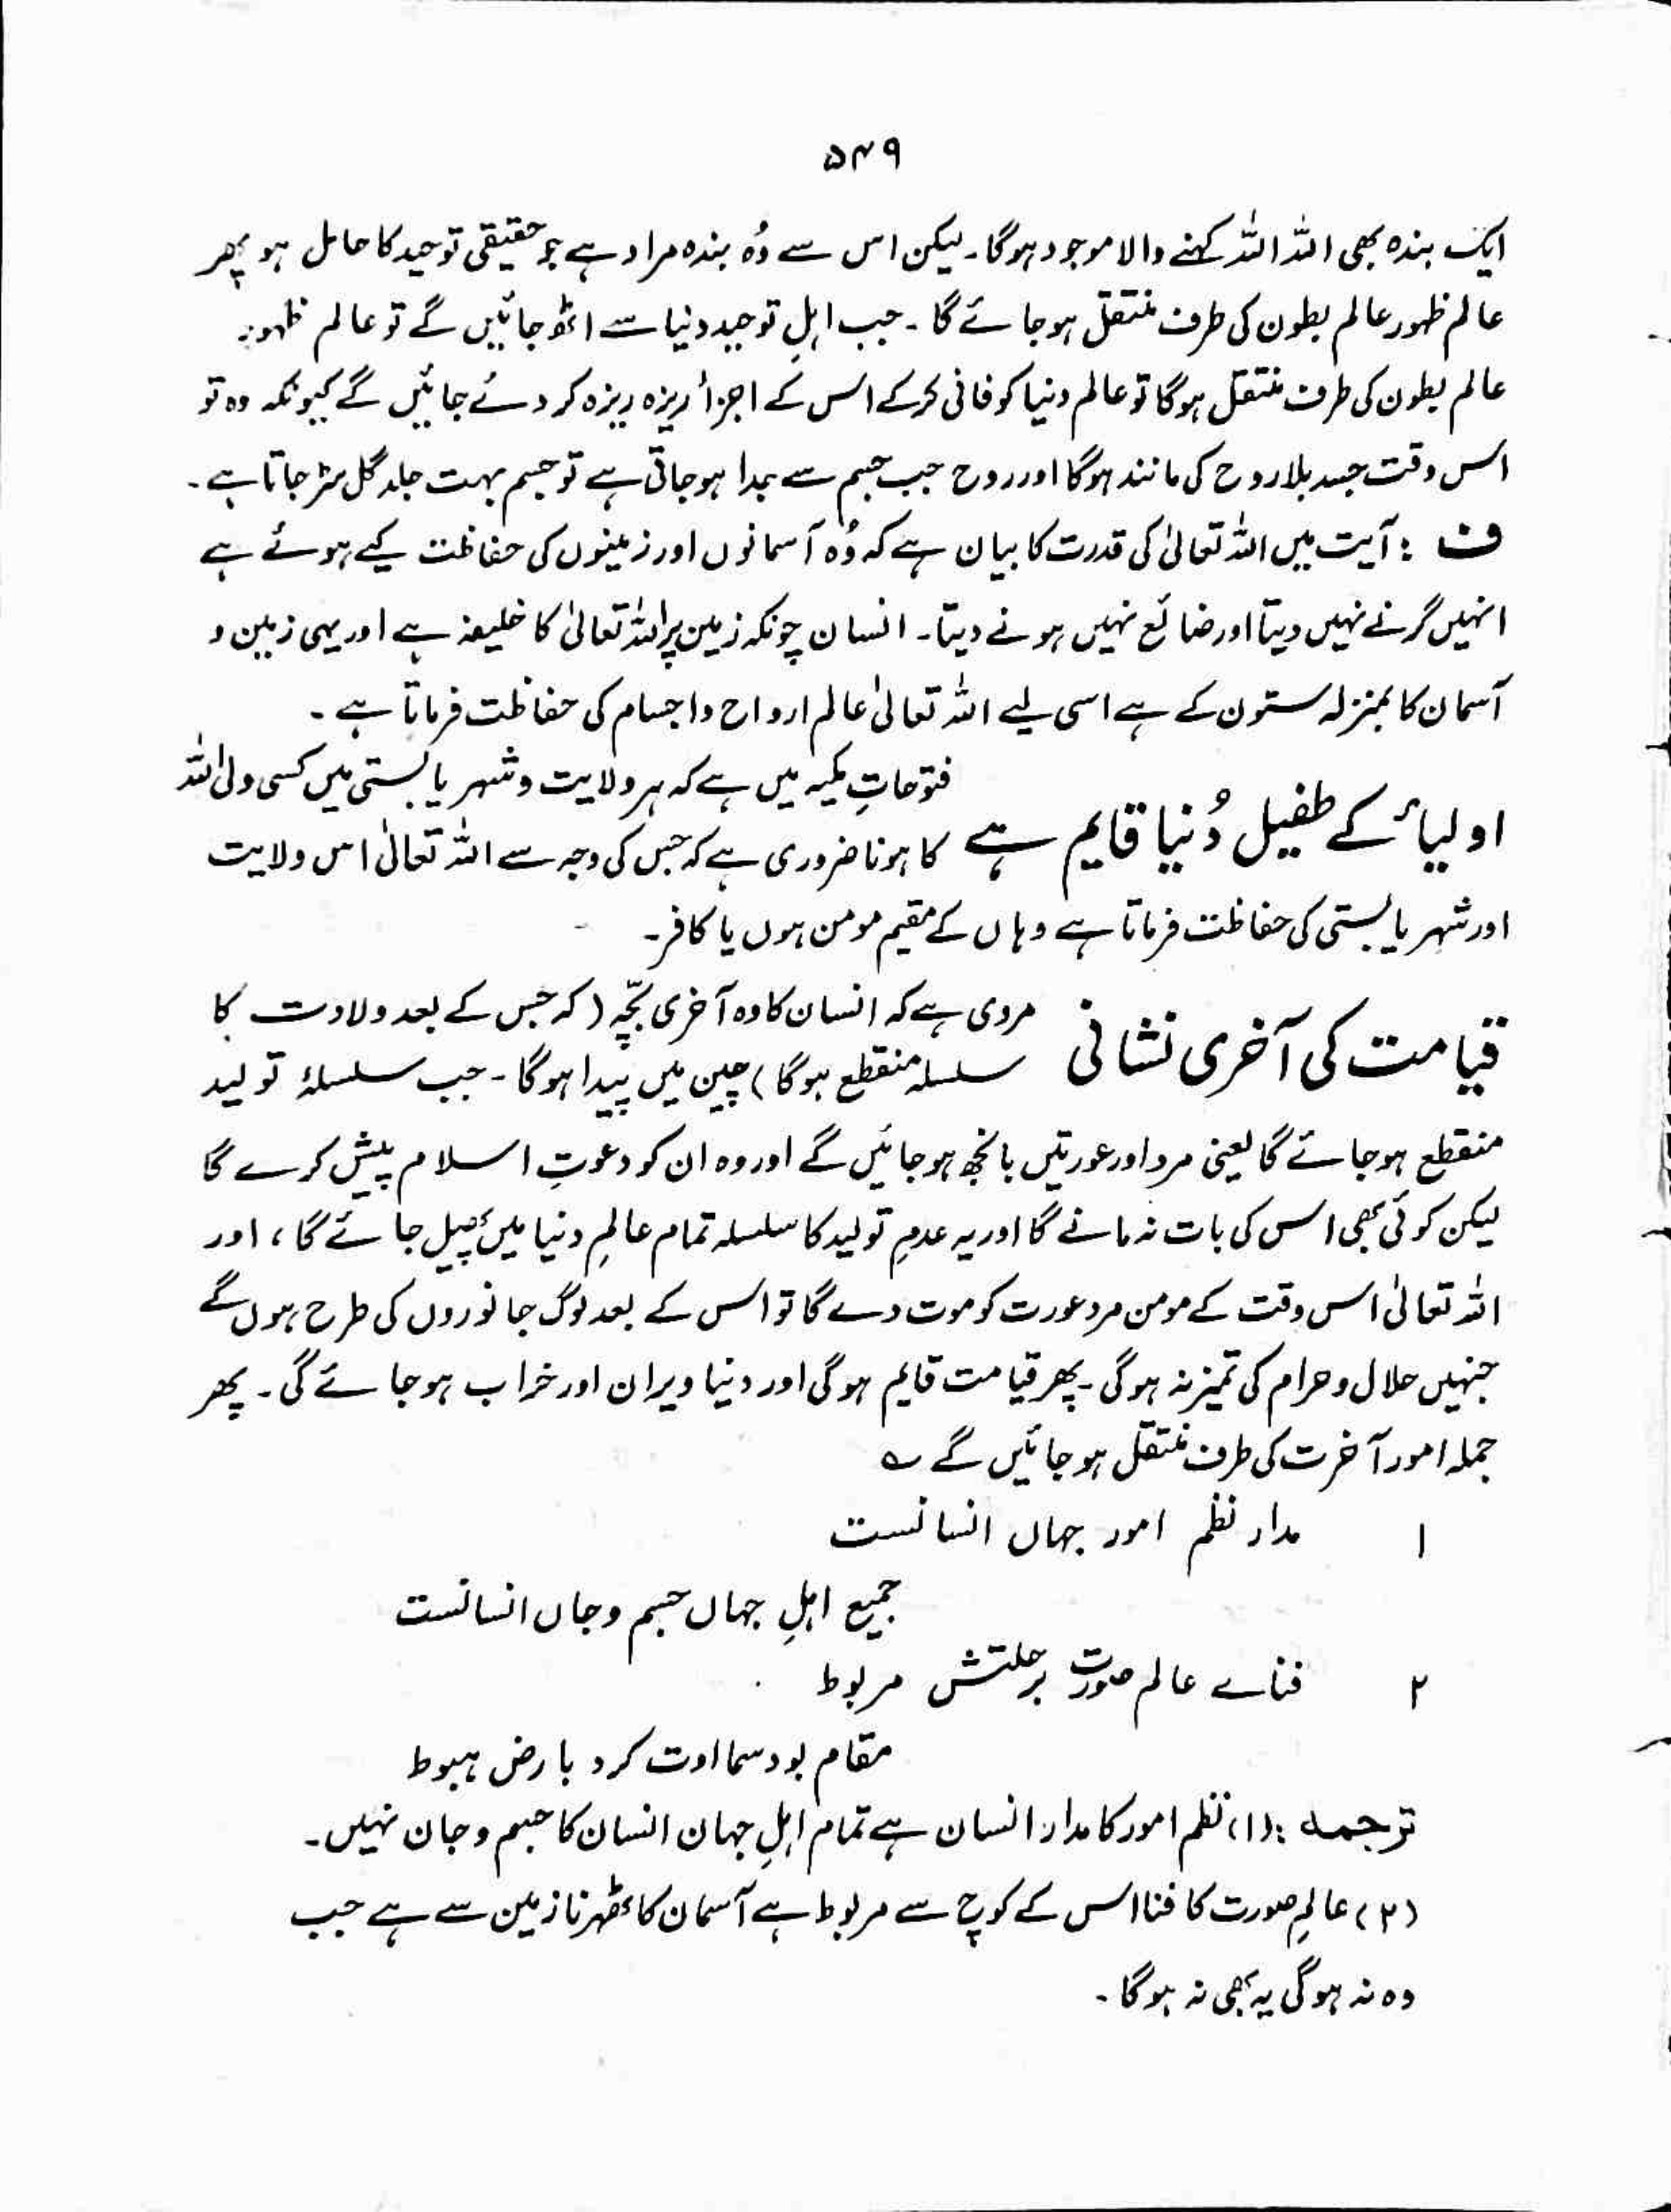 ۵۴۹
ایک بندہ بھی اللہ اللہ کہنے والا موجود ہوگا۔ لیکن اس سے وُہ بندہ مراد ہے جو حقیقی توحید کا حامل ہو پھر
عالم ظہور عالم بطون کی طرف منتقل ہوجائے گا۔ جب اہلِ توحید دنیا سے اٹھ جائیں گے تو عالم ظہور
عالم بطون کی طرف منتقل ہوگا تو عالم دنیا کو فانی کرکے اس کے اجزأ ریزہ ریزہ کر دئے جائیں گے کیونکہ وہ تو
اس وقت جسد بلا روح کی مانند ہوگا اور روح جب جسم سے جدا ہوجاتی ہے تو جسم بہت جلد گل سڑ جاتا ہے۔
ف : آیت میں اللہ تعالیٰ کی قدرت کا بیان ہے کہ وُہ آسمانوں اور زمینوں کی حفاظت کیے ہوئے ہے
انہیں گرنے نہیں دیتا اور ضائع نہیں ہونے دیتا۔ انسان چونکہ زمین پر اللہ تعالیٰ کا خلیفہ ہے اور یہی زمین و
آسمان کا بمنزلہ ستون کے ہے اسی لیے اللہ تعالیٰ عالم ارواح و اجسام کی حفاظت فرماتا ہے۔
اولیاءٔ کے طفیل دُنیا قایم ہے
فتوحاتِ مکیہ میں ہے کہ ہر ولایت و شہر یا بستی میں کسی ولی اللہ
کا ہونا ضروری ہے کہ جس کی وجہ سے اللہ تعالیٰ اس ولایت
اور شہر یا بستی کی حفاظت فرماتا ہے وہاں کے مقیم مومن ہوں یا کافر۔
قیامت کی آخری نشانی
مروی ہے کہ انسان کا وہ آخری بچّہ (کہ جس کے بعد ولادت کا
سلسلہ منقطع ہوگا) چین میں پیدا ہوگا۔ جب سلسلۂ تولید
منقطع ہوجائے گا یعنی مرد اور عورتیں بانجھ ہوجائیں گے اور وہ ان کو دعوتِ اسلام پیش کرے گا
لیکن کوئی بھی اس کی بات نہ مانے گا اور یہ عدمِ تولید کا سلسلہ تمام عالمِ دنیا میں پھیل جائے گا، اور
اللہ تعالیٰ اس وقت کے مومن مرد عورت کو موت دے گا تو اس کے بعد لوگ جانوروں کی طرح ہوں گے
جنہیں حلال و حرام کی تمیز نہ ہوگی۔ پھر قیامت قایم ہوگی اور دنیا ویران اور خراب ہوجائے گی۔ پھر
جملہ امور آخرت کی طرف منتقل ہوجائیں گے ؎
۱ مدار نظم امور جہاں انسانست
جمیع اہلِ جہاں جسم و جاں انسانست
۲ فناے عالم صورت برحلتش مربوط
مقام بود سماوات کرد بارض ہبوط
ترجمہ : (۱) نظم امور کا مدار انسان ہے تمام اہلِ جہان انسان کا جسم و جان نہیں۔
(۲) عالمِ صورت کا فنا اس کے کوچ سے مربوط ہے آسمان کا ٹھہرنا زمین سے ہے جب
وہ نہ ہوگی یہ بھی نہ ہوگا۔